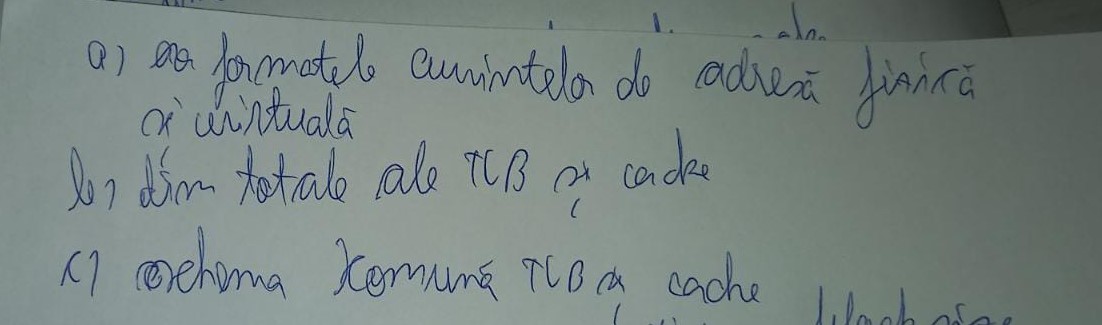 a) formatele cuvintelor de adresă fizică
și virtuală
b) dim totale ale TLB și cache
c) schema comună TLB și cache